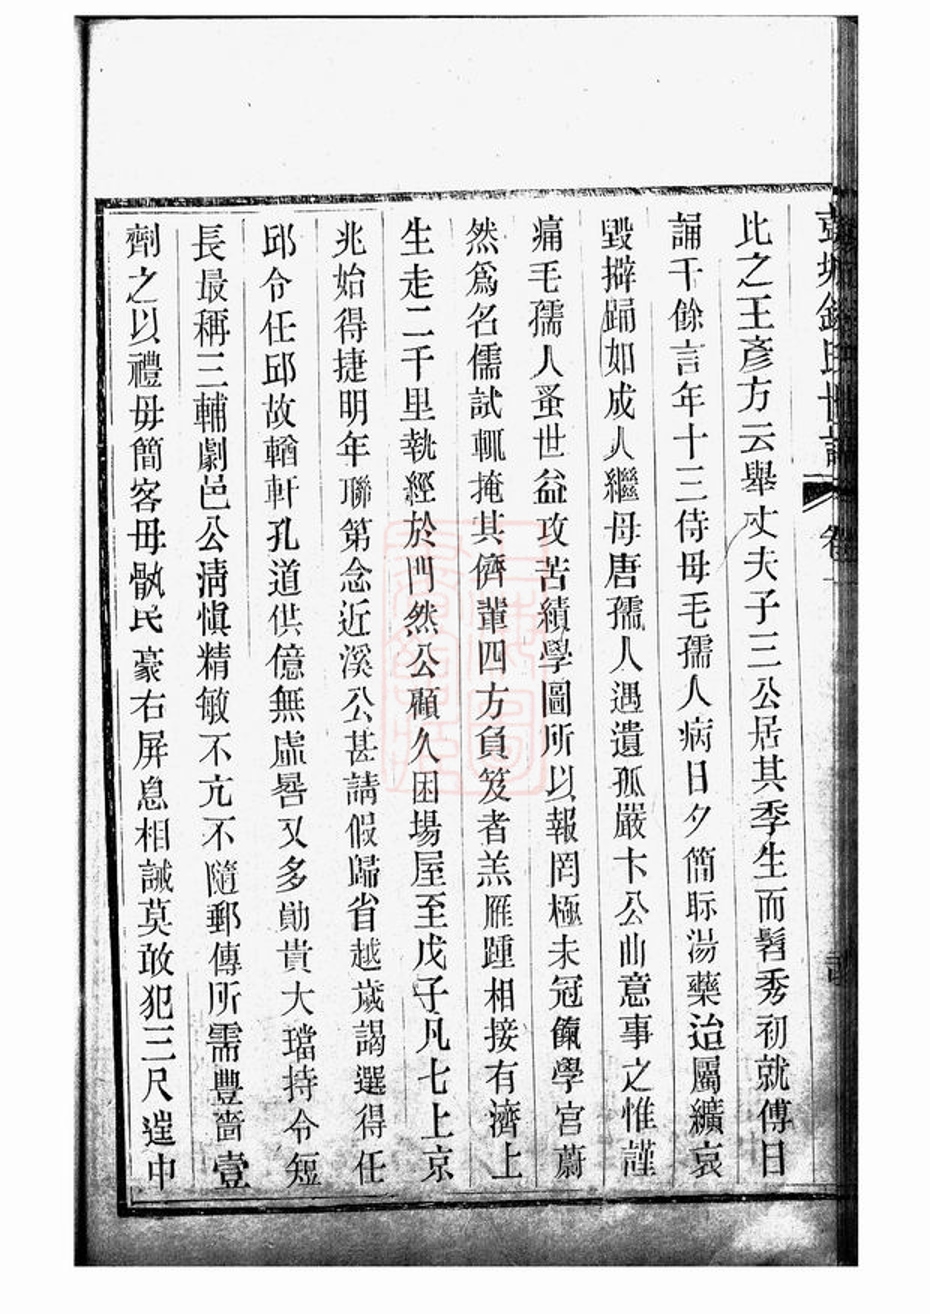 彭城錢氏世譜 卷
比之王彥方云舉丈夫子三公居其季生而髫秀初就傅日
誦千餘言年十三侍母毛孺人病日夕簡眎湯藥迨屬纊哀
毀擗踊如成人繼母唐孺人遇遺孤嚴卞公曲意事之惟謹
痛毛孺人蚤世益攻苦績學圖所以報罔極未冠餼學宮蔚
然爲名儒試輒掩其儕輩四方負笈者羔雁踵相接有濟上
生走二千里執經於門然公顧久困場屋至戊子凡七上京
兆始得捷明年聯第念近溪公甚請假歸省越歲謁選得任
邱令任邱故輶軒孔道供億無虛晷又多勛貴大璫持令短
長最稱三輔劇邑公清愼精敏不亢不隨郵傳所需豐嗇壹
劑之以禮毋簡客毋骩民豪右屏息相誡莫敢犯三尺遑中